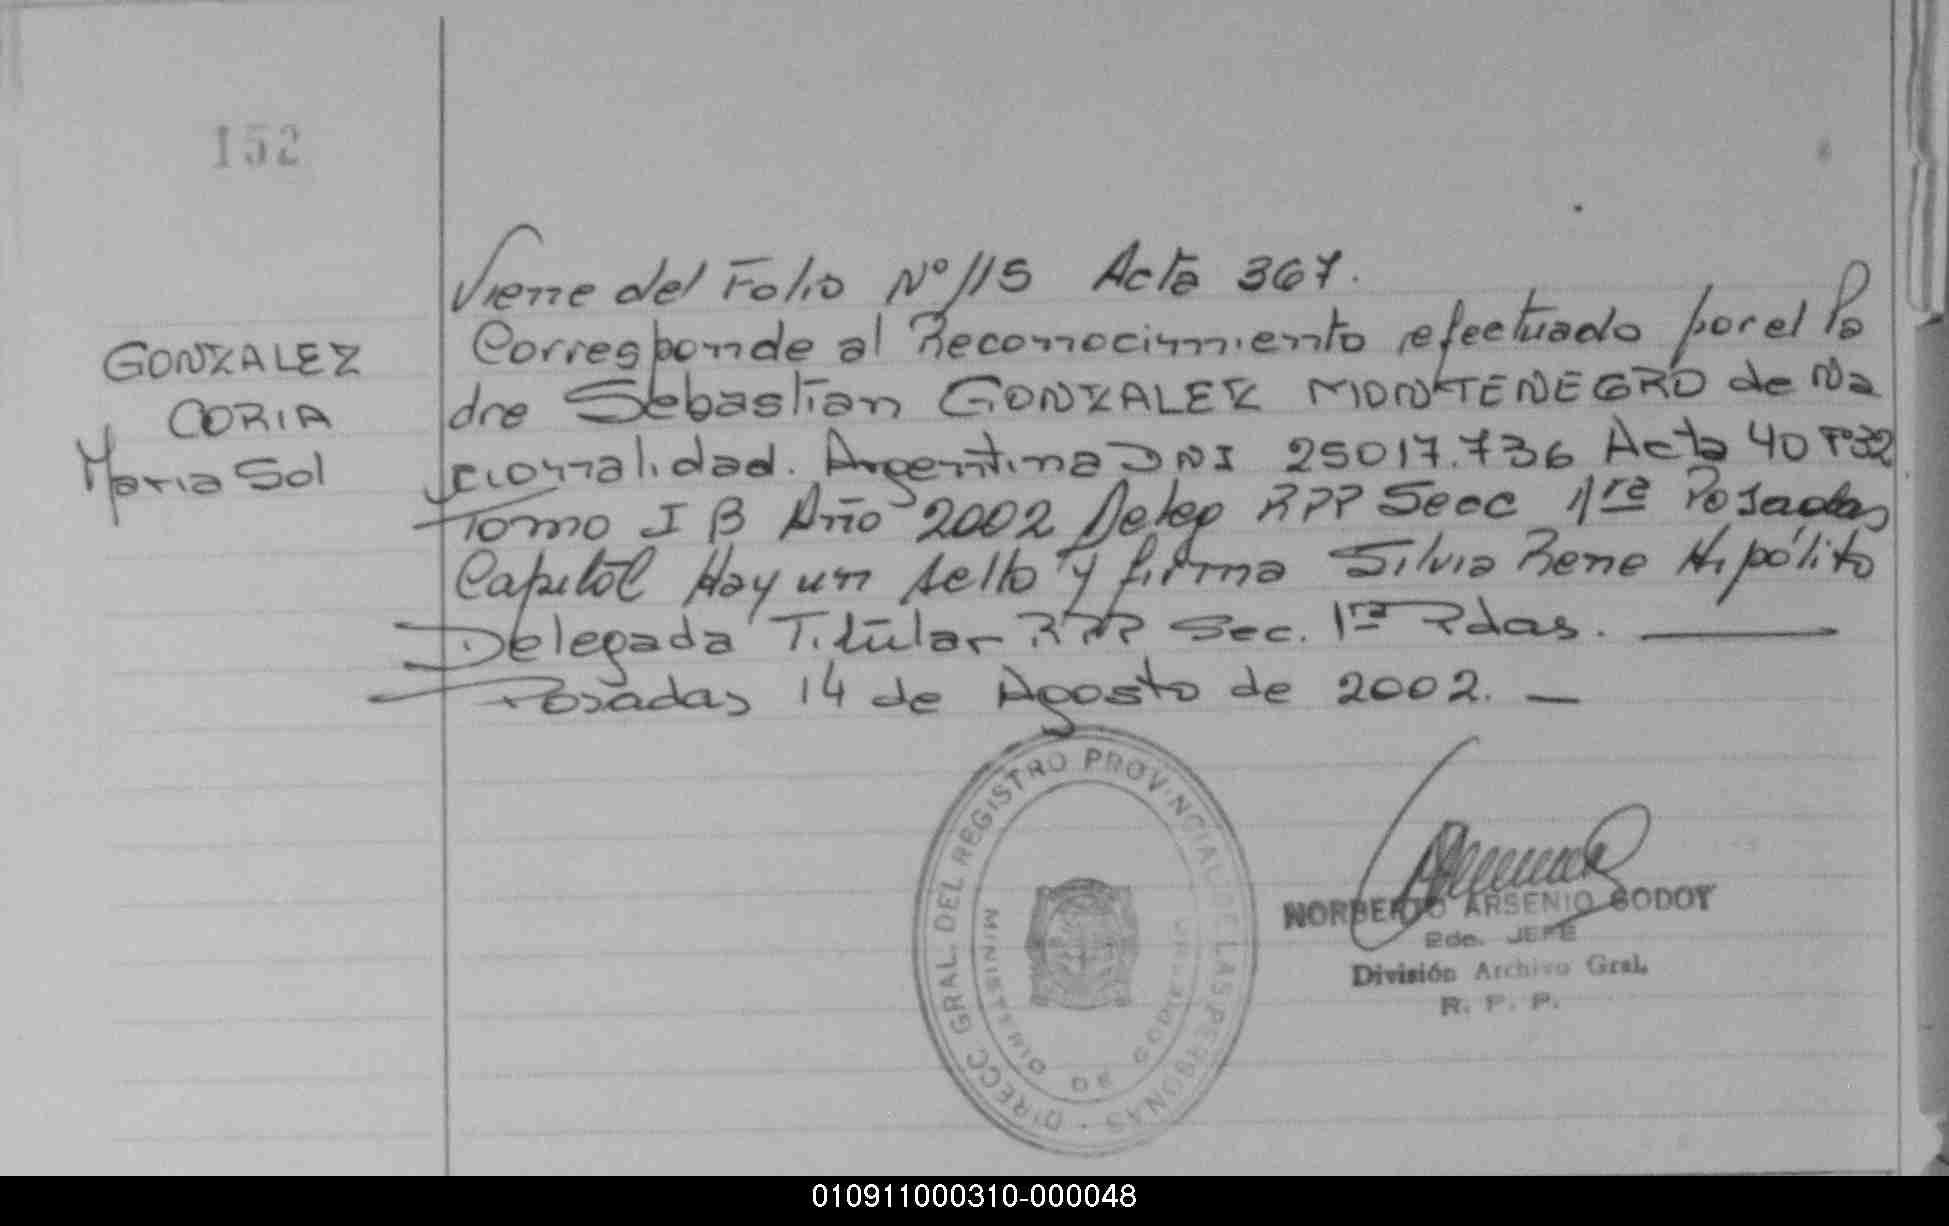 152
Viene del Folio Nº 115 Acta 367.
GONZALEZ
CORIA
Maria Sol
Corresponde al Reconocimiento efectuado por el Pa
dre Sebastian GONZALEZ MONTENEGRO de Na
cionalidad. Argentina DNI 25017.736 Acta 40 Fº32
Tomo I B Año 2002 Deleg RPP Secc 1ra Posadas
Capital Hay un sello y firma Silvia Rene Hipólito
Delegada Titular RPP Sec. 1ra Pdas.
Posadas 14 de Agosto de 2002.
DIRECC. GRAL. DEL REGISTRO PROVINCIAL DE LAS PERSONAS
MINISTERIO DE GOBIERNO
NORBERTO ARSENIO GODOY
2do. JEFE
División Archivo Gral.
R. P. P.
010911000310-000048